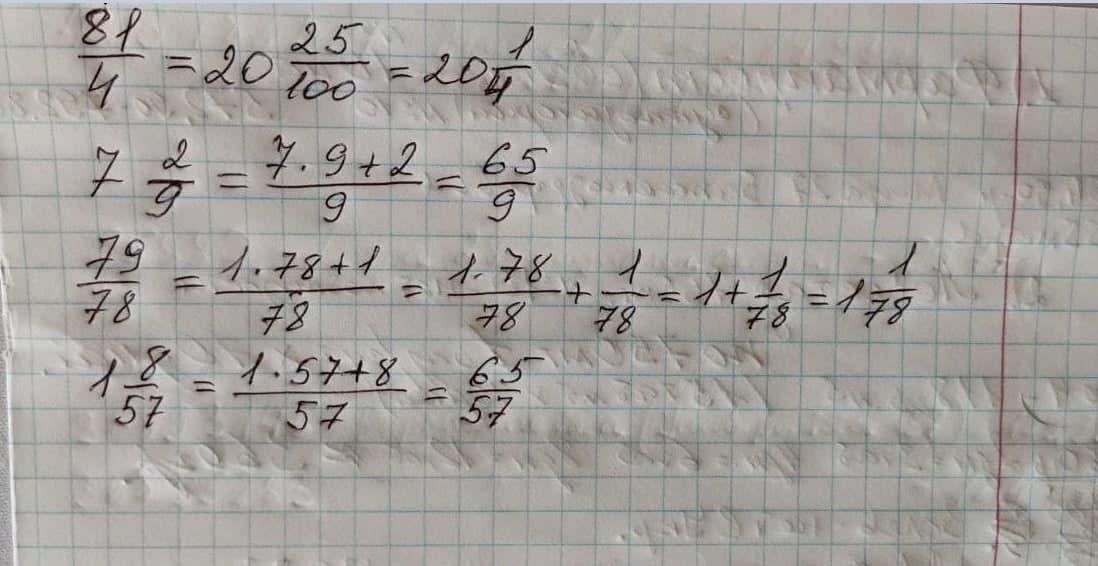 81/4 = 20 25/100 = 20 1/4
7 2/9 = (7·9+2)/9 = 65/9
79/78 = (1·78+1)/78 = (1·78)/78 + 1/78 = 1 + 1/78 = 1 1/78
1 8/57 = (1·57+8)/57 = 65/57